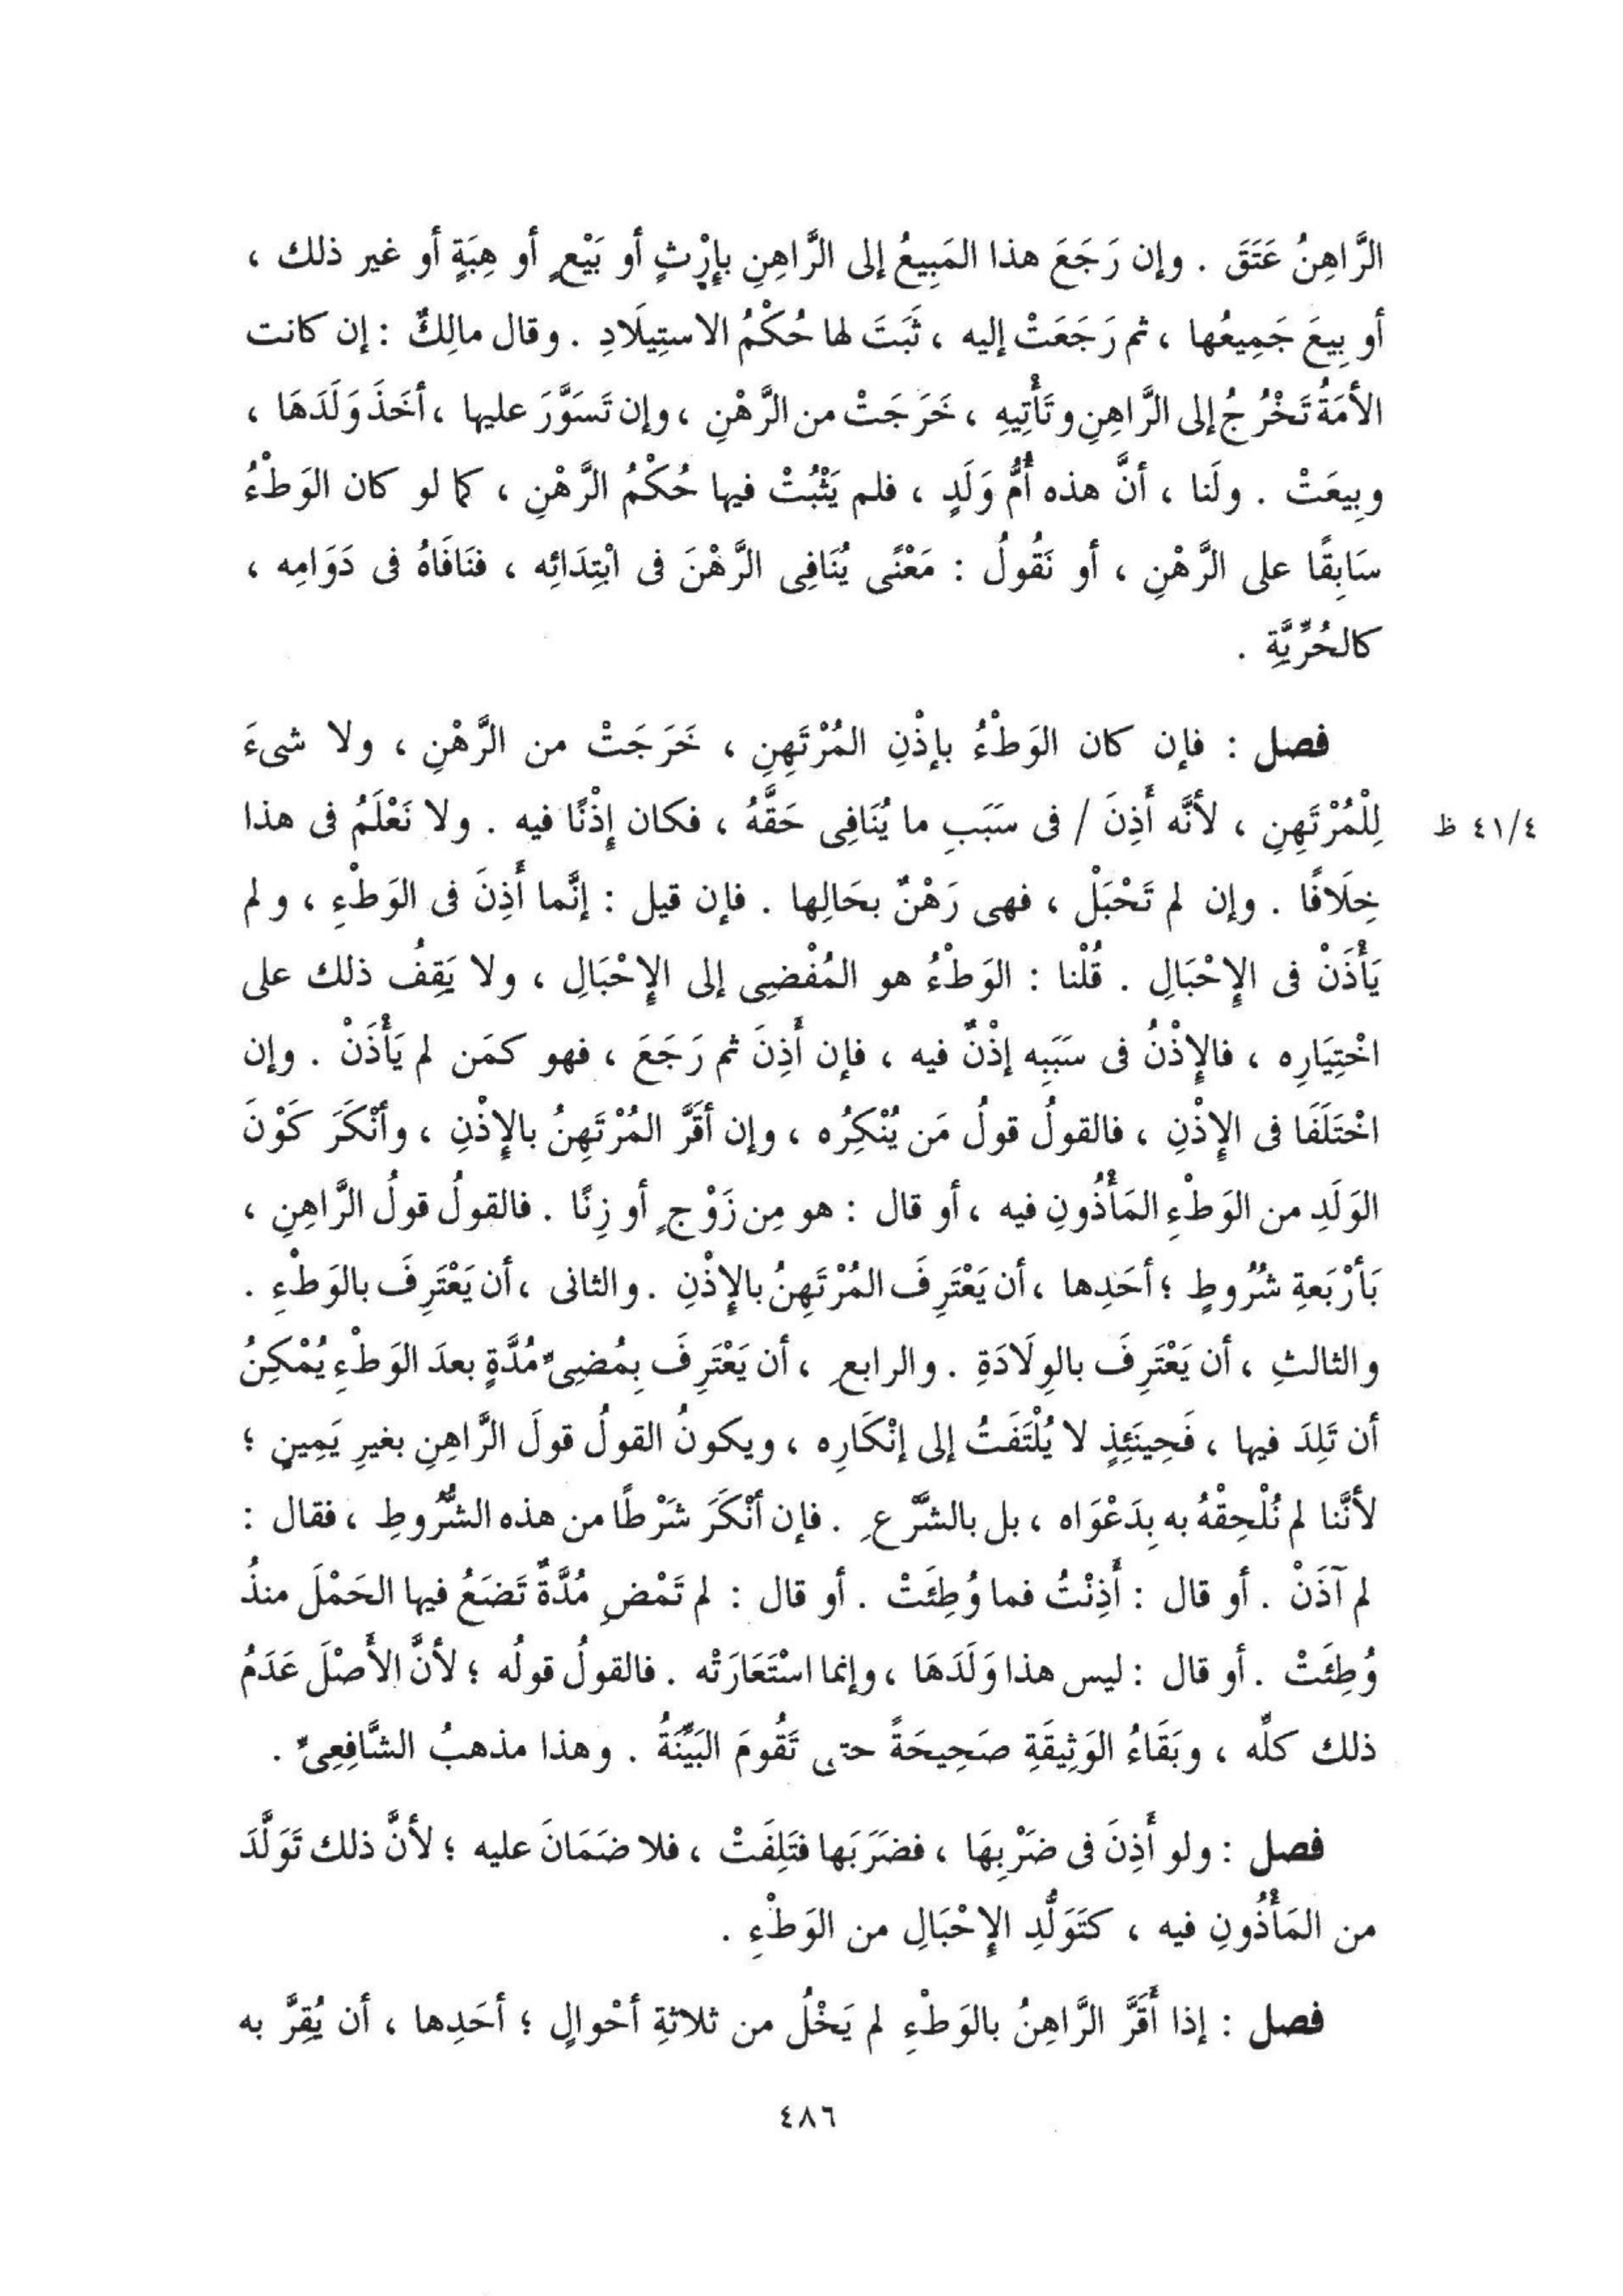 الرَّاهِنُ عَتَقَ . وإن رَجَعَ هذا المَبِيعُ إلى الرَّاهِنِ بإِرْثٍ أو بَيْعٍ أو هِبَةٍ أو غير ذلك ،
أو بِيعَ جَمِيعُها ، ثم رَجَعَتْ إليه ، ثَبَتَ لها حُكْمُ الاستِيلَادِ . وقال مالِكٌ : إن كانت
الأمَةُ تَخْرُجُ إلى الرَّاهِنِ وتَأْتِيهِ ، خَرَجَتْ من الرَّهْنِ ، وإن تَسَوَّرَ عليها ، أخَذَ وَلَدَهَا ،
وبِيعَتْ . ولَنا ، أنَّ هذه أُمُّ وَلَدٍ ، فلم يَثْبُتْ فيها حُكْمُ الرَّهْنِ ، كما لو كان الوَطْءُ
سَابِقًا على الرَّهْنِ ، أو نَقُولُ : مَعْنًى يُنَافِى الرَّهْنَ فى ابْتِدَائِه ، فنَافَاهُ فى دَوَامِه ،
كالحُرِّيَّةِ .
فصل : فإن كان الوَطْءُ بإذْنِ المُرْتَهِنِ ، خَرَجَتْ من الرَّهْنِ ، ولا شىءَ
لِلْمُرْتَهِنِ ، لأنَّه أَذِنَ / فى سَبَبِ ما يُنَافِى حَقَّهُ ، فكان إِذْنًا فيه . ولا نَعْلَمُ فى هذا
٤١/٤ ظ
خِلَافًا . وإن لم تَحْبَلْ ، فهى رَهْنٌ بحَالِها . فإن قيل : إنَّما أَذِنَ فى الوَطْءِ ، ولم
يَأْذَنْ فى الإِحْبَالِ . قُلْنا : الوَطْءُ هو المُفْضِى إلى الإِحْبَالِ ، ولا يَقِفُ ذلك على
اخْتِيَارِه ، فالإِذْنُ فى سَبَبِه إذْنٌ فيه ، فإن أَذِنَ ثم رَجَعَ ، فهو كمَن لم يَأْذَنْ . وإن
اخْتَلَفَا فى الإِذْنِ ، فالقولُ قولُ مَن يُنْكِرُه ، وإن أقَرَّ المُرْتَهِنُ بالإِذْنِ ، وأنْكَرَ كَوْنَ
الوَلَدِ من الوَطْءِ المَأْذُونِ فيه ، أو قال : هو مِن زَوْجٍ أو زِنًا . فالقولُ قولُ الرَّاهِنِ ،
بَأرْبَعةِ شُرُوطٍ ؛ أحَدِها ، أن يَعْتَرِفَ المُرْتَهِنُ بالإِذْنِ . والثانى ، أن يَعْتَرِفَ بالوَطْءِ .
والثالثِ ، أن يَعْتَرِفَ بالوِلَادَةِ . والرابعِ ، أن يَعْتَرِفَ بِمُضِىِّ مُدَّةٍ بعدَ الوَطْءِ يُمْكِنُ
أن تَلِدَ فيها ، فَحِينَئِذٍ لا يُلْتَفَتُ إلى إنْكَارِه ، ويكونُ القولُ قولَ الرَّاهِنِ بغيرِ يَمِينٍ ؛
لأنَّنا لم نُلْحِقْهُ به بِدَعْوَاه ، بل بالشَّرْعِ . فإن أنْكَرَ شَرْطًا من هذه الشُّرُوطِ ، فقال :
لم آذَنْ . أو قال : أَذِنْتُ فما وُطِئَتْ . أو قال : لم تَمْضِ مُدَّةٌ تَضَعُ فيها الحَمْلَ منذُ
وُطِئَتْ . أو قال : ليس هذا وَلَدَهَا ، وإنما اسْتَعَارَتْه . فالقولُ قولُه ؛ لأنَّ الأَصْلَ عَدَمُ
ذلك كلِّه ، وبَقَاءُ الوَثِيقَةِ صَحِيحَةً حتى تَقُومَ البَيِّنَةُ . وهذا مذهبُ الشَّافِعِىِّ .
فصل : ولو أَذِنَ فى ضَرْبِهَا ، فضَرَبَها فتَلِفَتْ ، فلا ضَمَانَ عليه ؛ لأنَّ ذلك تَوَلَّدَ
من المَأْذُونِ فيه ، كتَوَلُّدِ الإِحْبَالِ من الوَطْءِ .
فصل : إذا أَقَرَّ الرَّاهِنُ بالوَطْءِ لم يَخْلُ من ثلاثةِ أحْوالٍ ؛ أحَدِها ، أن يُقِرَّ به
٤٨٦